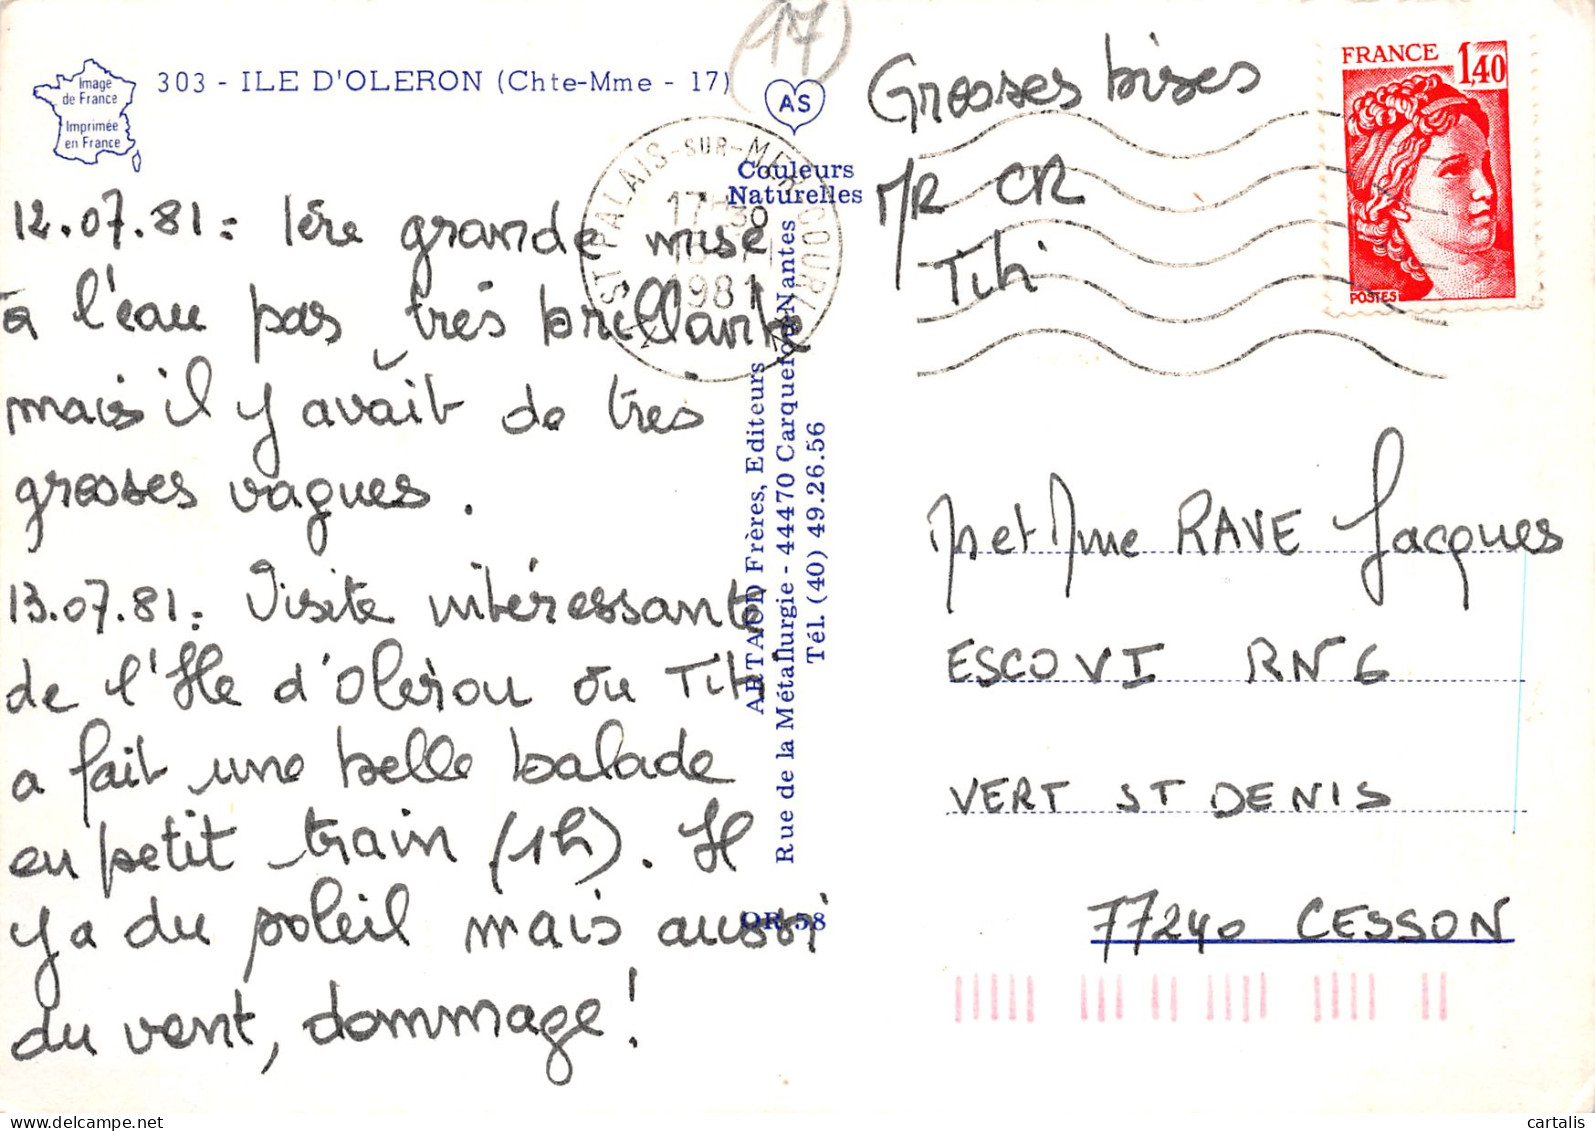 (17)
Image
de France
Imprimée
en France
303 - ILE D'OLERON (Chte-Mme - 17)
AS
Couleurs
Naturelles
12.07.81 : 1ère grande mise
à l'eau pas très brillante
mais il y avait de très
grosses vagues.
13.07.81 : Visite intéressante
de l'Ile d'Oléron où Titi
a fait une belle balade
en petit train (1h). Il
y a du soleil mais aussi
du vent, dommage !
ST PALAIS-SUR-MER
17-30
1981
ARTAUD Frères, Editeurs
Rue de la Métallurgie - 44470 Carquefou-Nantes
Tél. (40) 49.26.56
OR 58
Grosses bises
MR CR
Titi
FRANCE
1,40
POSTES
M et Mme RAVE Jacques
ESCOVI RN 6
VERT ST DENIS
77240 CESSON
cartalis